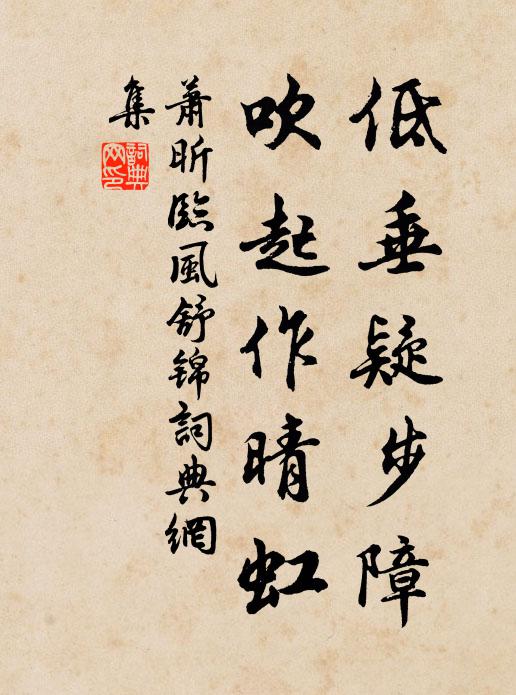 低垂疑步障
吹起作晴虹
萧昕臨風舒錦詞典網
集
詞典網印